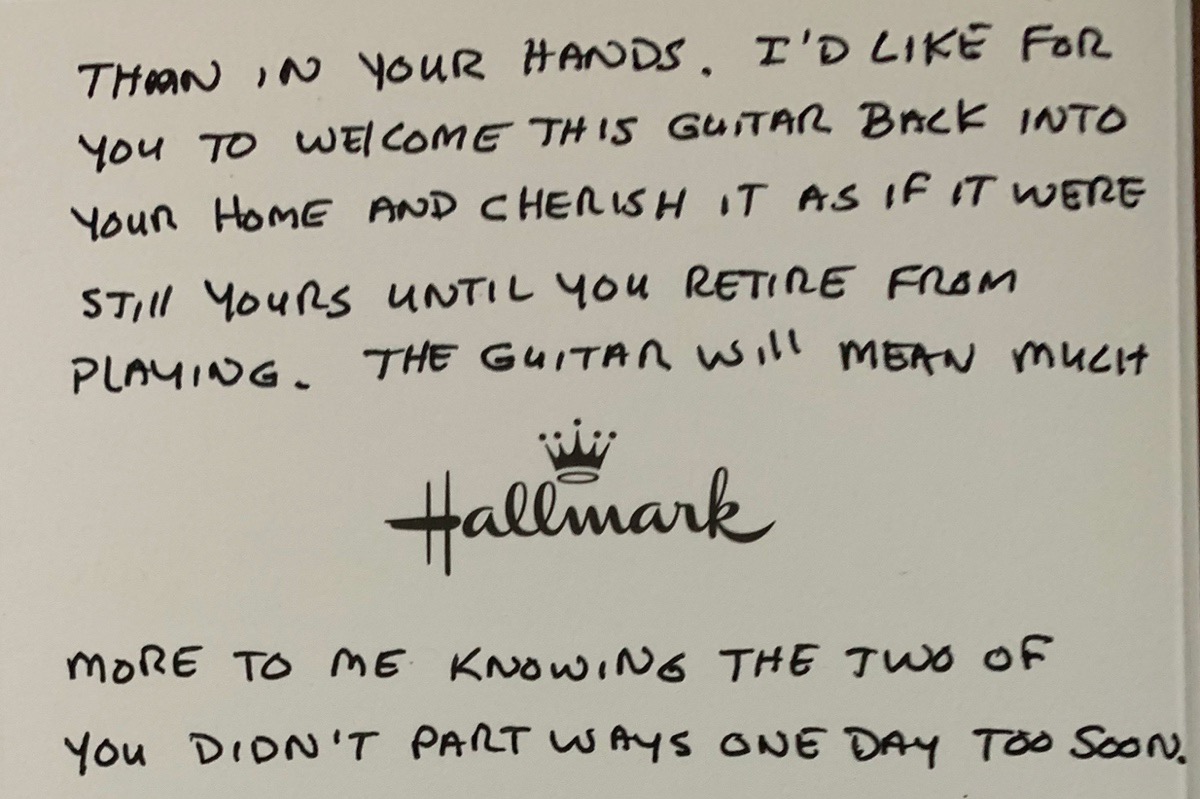 THAN IN YOUR HANDS. I'D LIKE FOR
YOU TO WElCOME THIS GUITAR BACK INTO
YOUR HOME AND CHERISH IT AS IF IT WERE
STIll YOURS UNTIL YOU RETIRE FROM
PLAYING. THE GUITAR WIll MEAN MUCH
Hallmark
MORE TO ME KNOWING THE TWO OF
YOU DIDN'T PART WAYS ONE DAY TOO SOON.